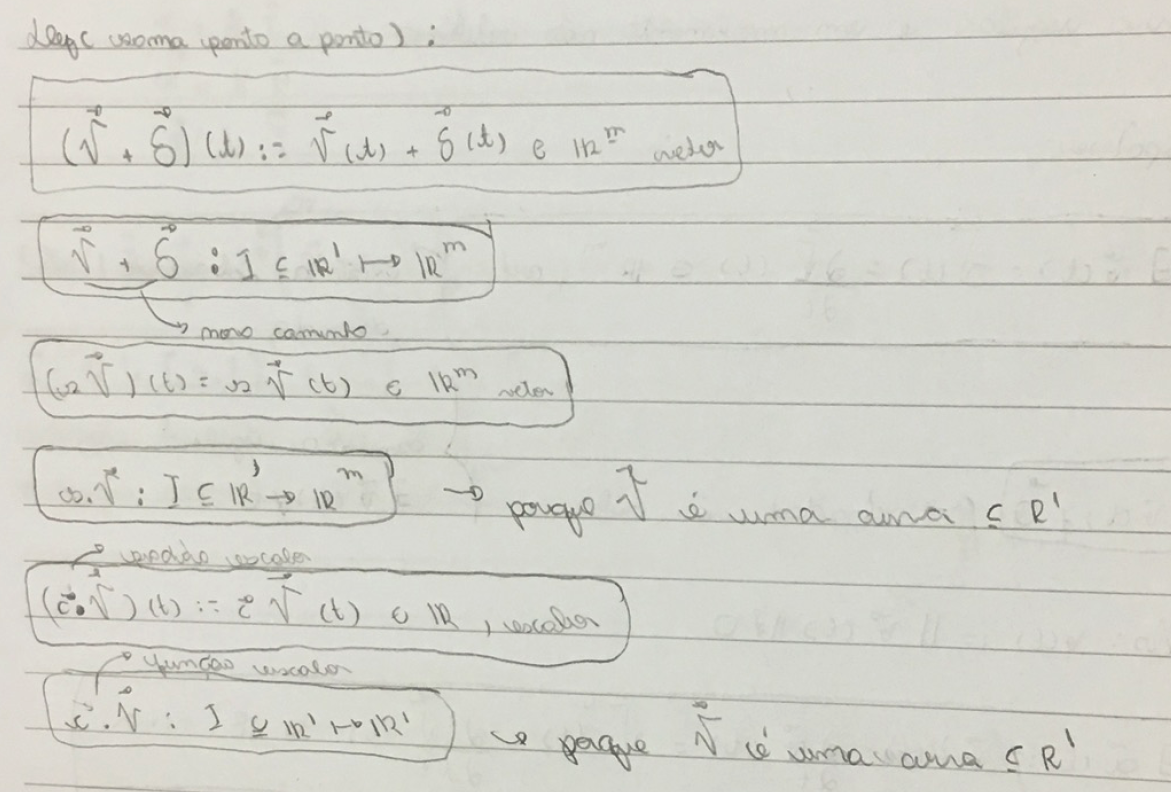 def (soma ponto a ponto):
(γ⃗ + δ⃗)(t) := γ⃗(t) + δ⃗(t) ∈ ℝᵐ vetor
γ⃗ + δ⃗ : I ⊆ ℝ¹ ↦ ℝᵐ
↳ novo caminho
(γ⃗)(t) = γ⃗(t) ∈ ℝᵐ vetor
. γ⃗ : I ⊆ ℝ¹ → ℝᵐ → porque γ⃗ é uma curva ⊆ ℝ¹
escalar
(c⃗ . γ⃗)(t) := c⃗ γ⃗(t) ∈ ℝ, escalar
função escalar
c⃗ . γ⃗ : I ⊆ ℝ¹ ↦ ℝ¹ ↪ porque γ⃗ é uma curva ⊆ ℝ¹